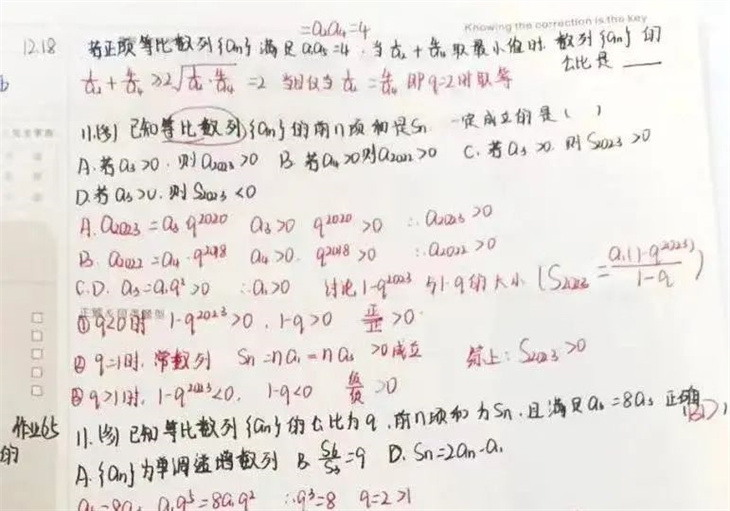 =a₂a₄=4
Knowing the correction is the key
12.18 若正项等比数列{an}满足a₁a₅=4,当1/a₂+4/a₄取最小值时,数列{an}的
公比是 ____
1/a₂+4/a₄≥2√(1/a₂·4/a₄)=2 当且仅当1/a₂=4/a₄即q=2时取等
11.(多)已知等比数列{an}的前n项和是Sn 一定成立的是( )
A.若a₃>0,则a₂₀₂₃>0 B.若a₄>0则a₂₀₂₂>0 C.若a₃>0.则S₂₀₂₃>0
D.若a₃>0.则S₂₀₂₃<0
A. a₂₀₂₃=a₃q²⁰²⁰ a₃>0 q²⁰²⁰>0 ∴a₂₀₂₃>0
B. a₂₀₂₂=a₄·q²⁰¹⁸ a₄>0. q²⁰¹⁸>0 ∴a₂₀₂₂>0
C.D. a₃=a₁q²>0 ∴a₁>0 讨论1-q²⁰²³与1-q的大小(S₂₀₂₃=a₁(1-q²⁰²³)/1-q)
①q<0时 1-q²⁰²³>0,1-q>0 正/正>0
②q=1时,常数列 Sn=na₁=na₃>0成立 综上:S₂₀₂₃>0
③q>1时,1-q²⁰²³<0, 1-q<0 负/负>0
作业65 11.(多)已知等比数列{an}的公比为q,前n项和为Sn,且满足a₆=8a₃ 正确(BD)
的 A.{an}为单调递增数列 B.S₆/S₃=9 D. Sn=2an-a₁
a₆=8a₃ a₁q⁵=8a₁q² ∴q³=8 q=2>1